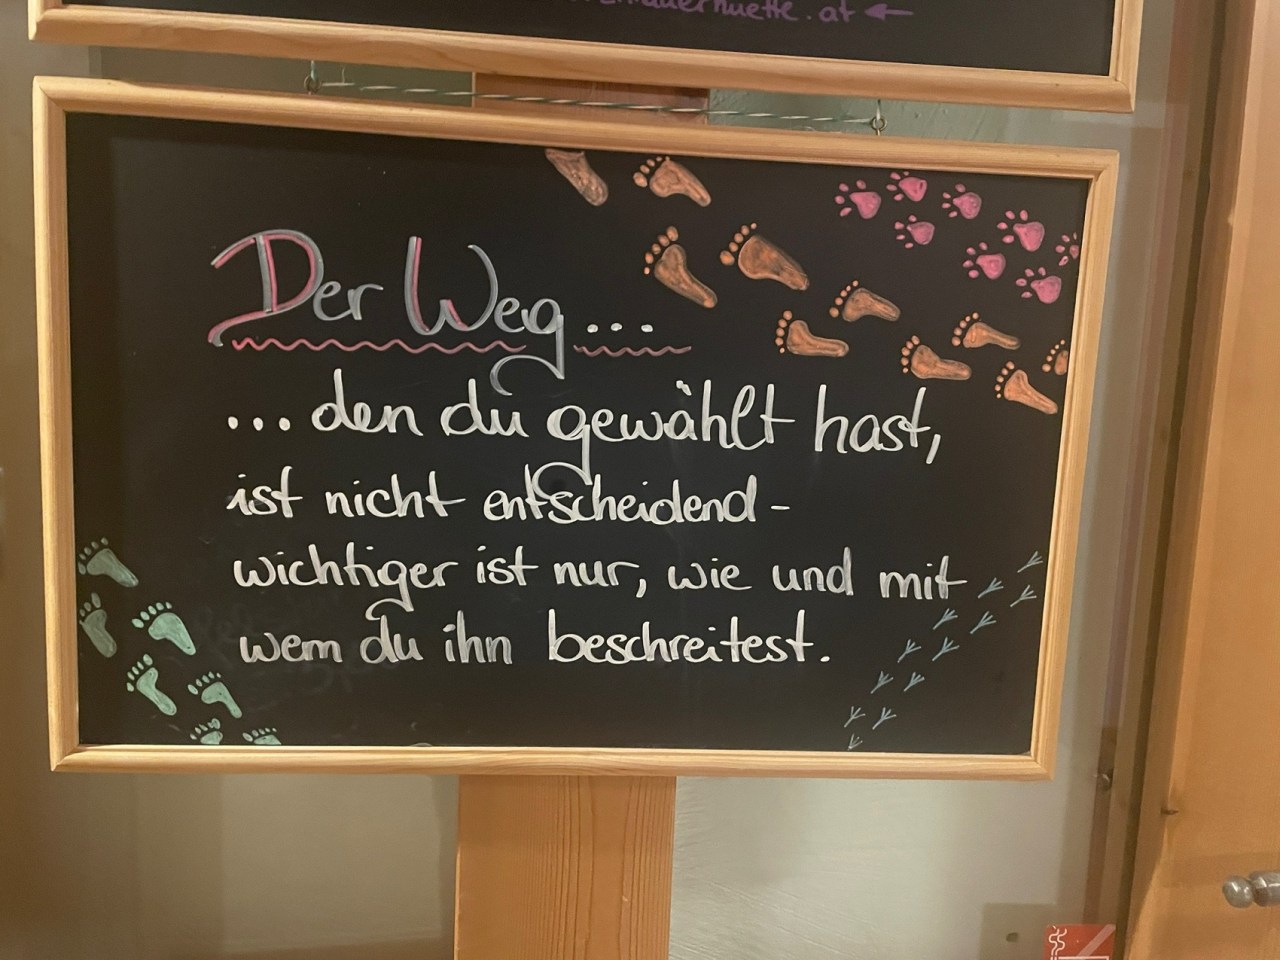 Der Weg...
...den du gewählt hast,
ist nicht entscheidend-
wichtiger ist nur, wie und mit
wem du ihn beschreitest.